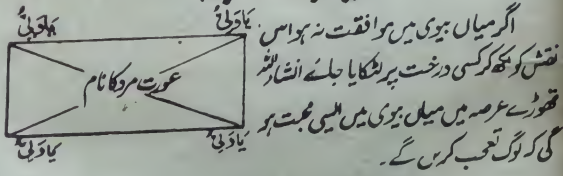 اگر میاں بیوی میں موافقت نہ ہو اس
نقش کو لکھ کر کسی درخت پر لٹکایا جائے انشاءاللہ
تھوڑے عرصہ میں میاں بیوی میں ایسی محبت ہو
گی کہ لوگ تعجب کریں گے۔
یَا وَلِیُّ
یَا وَلِیُّ
عورت مرد کا نام
یَا وَلِیُّ
یَا وَلِیُّ